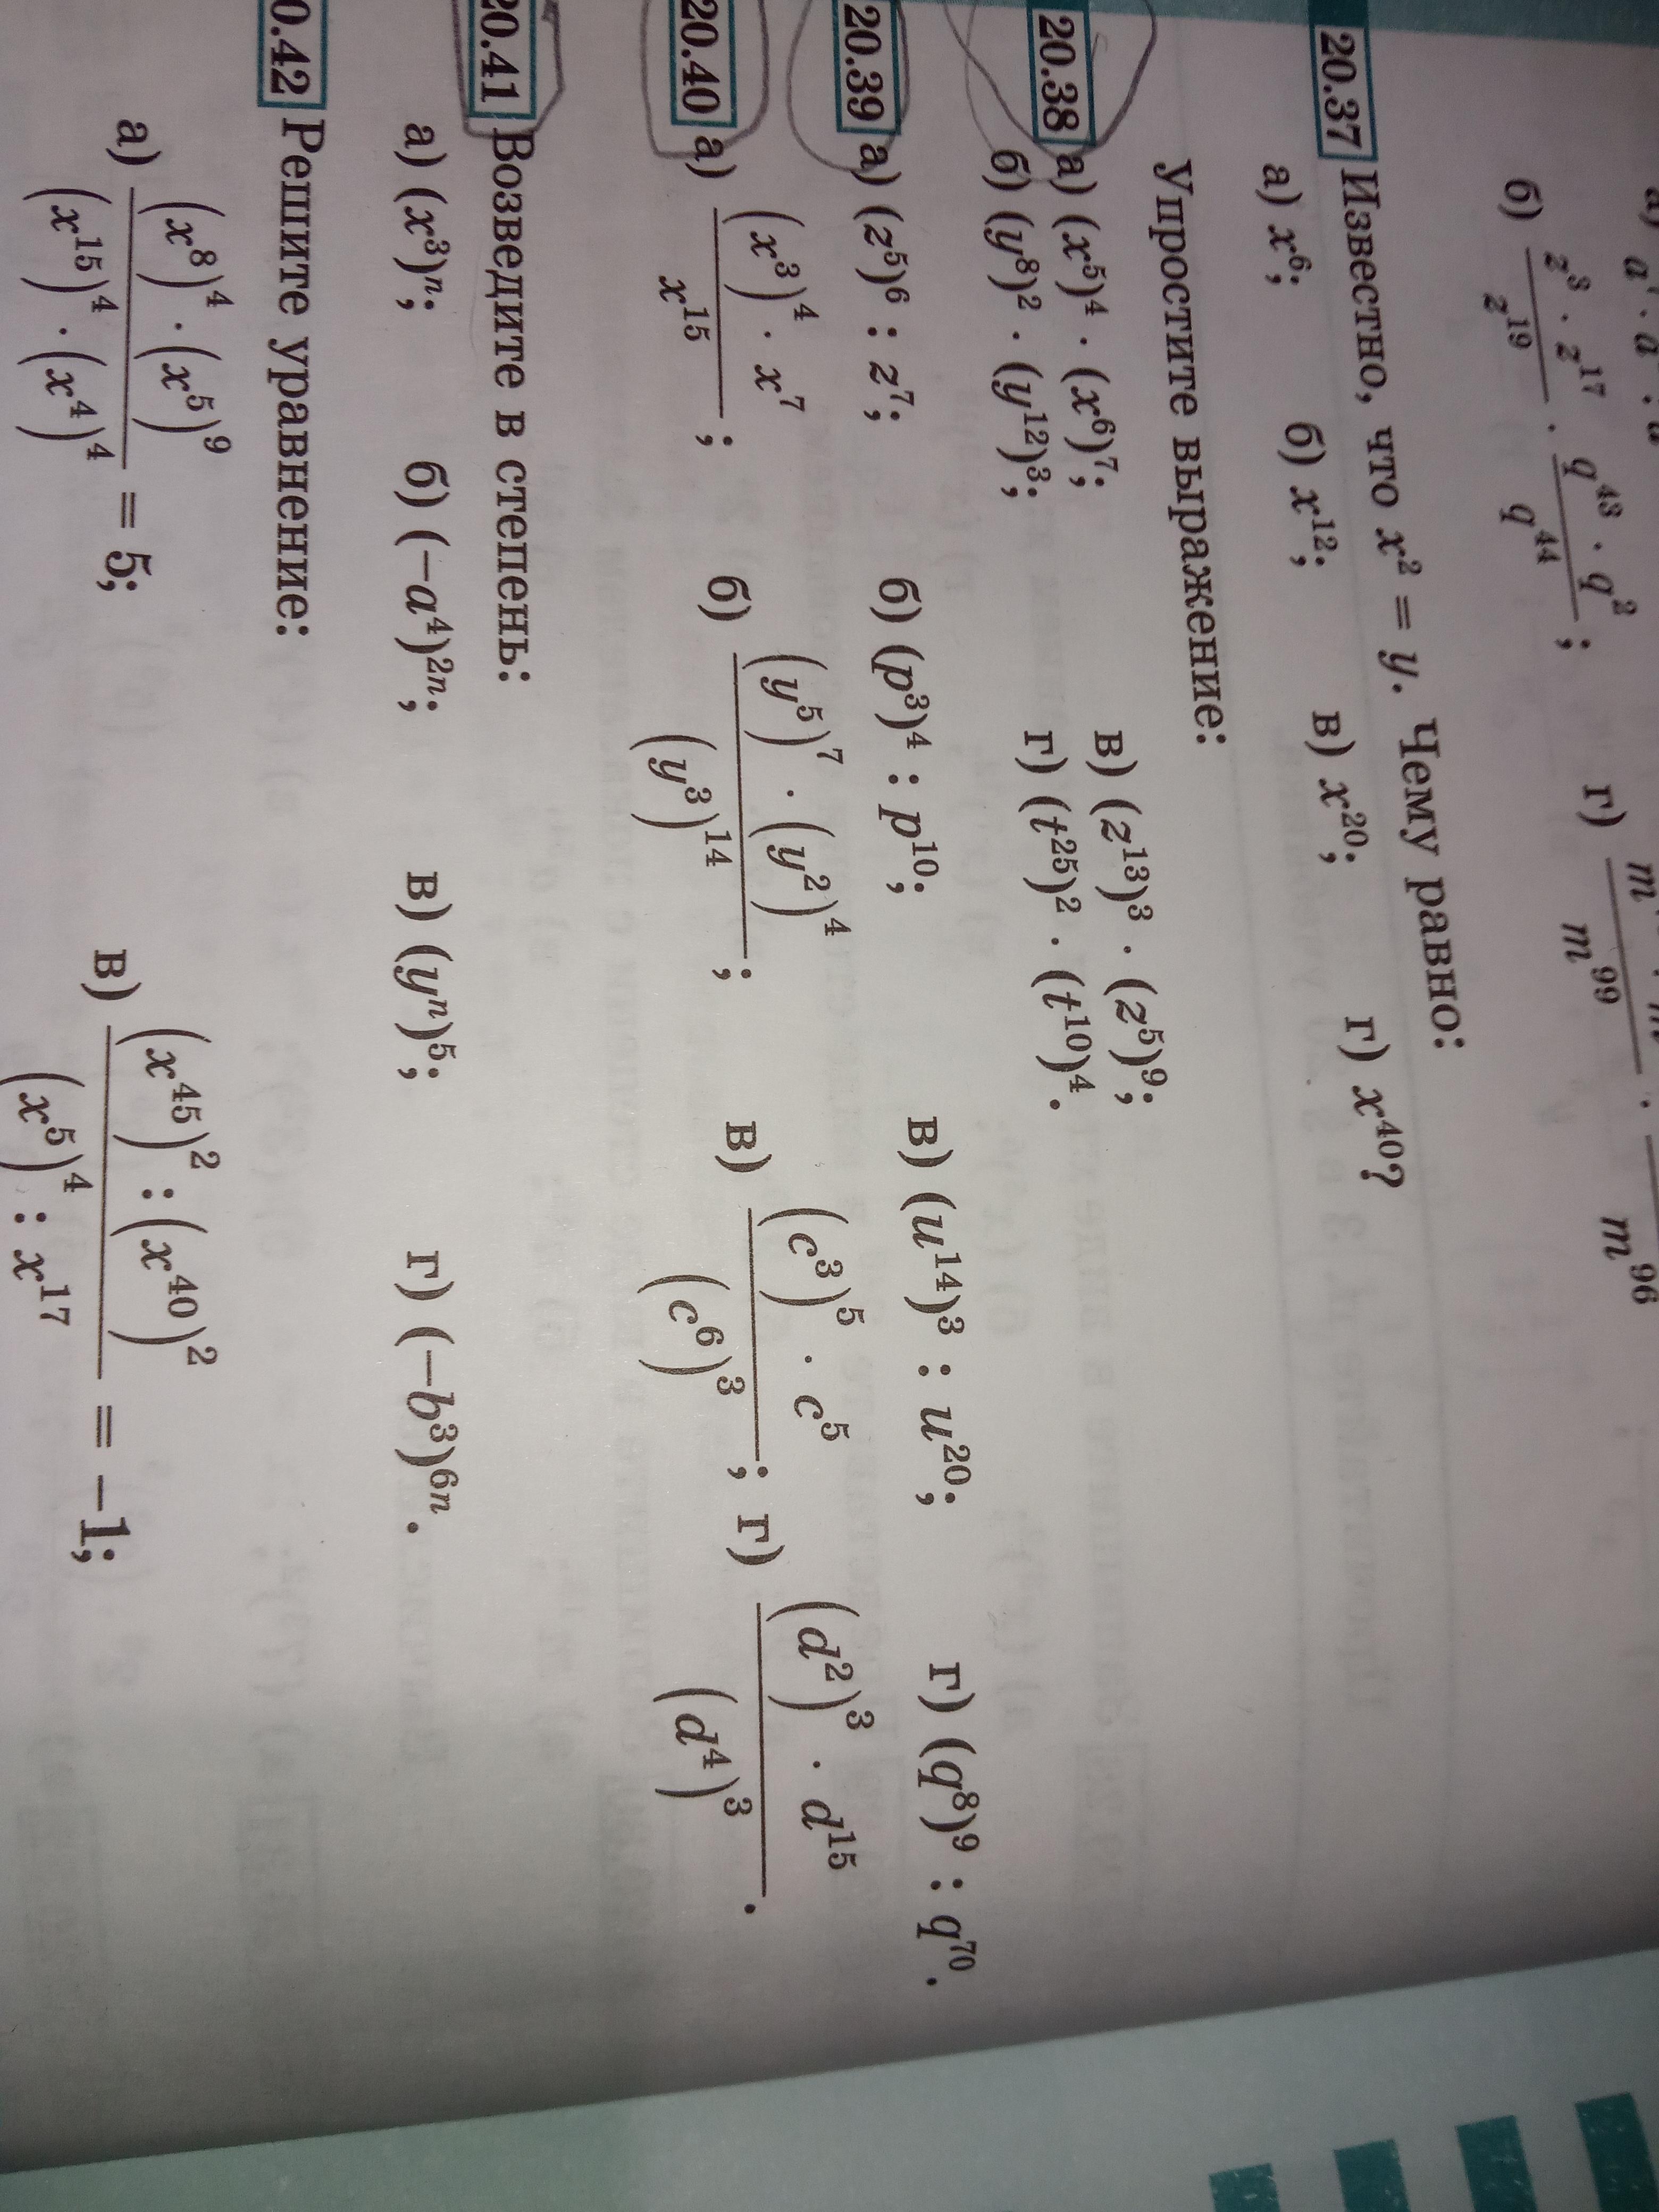 б) \frac{z^3 · z^{17}}{z^{19}} · \frac{q^{43} · q^2}{q^{44}}; г) \frac{m}{m^{99}} · \frac{}{m^{96}}
20.37 Известно, что x² = y. Чему равно:
а) x⁶; б) x¹²; в) x²⁰; г) x⁴⁰?
Упростите выражение:
20.38 а) (x⁵)⁴ · (x⁶)⁷; в) (z¹³)³ · (z⁵)⁹;
б) (y⁸)² · (y¹²)³; г) (t²⁵)² · (t¹⁰)⁴.
20.39 а) (z⁵)⁶ : z⁷; б) (p³)⁴ : p¹⁰; в) (u¹⁴)³ : u²⁰; г) (q⁸)⁹ : q⁷⁰.
20.40 а) \frac{(x^3)^4 · x^7}{x^{15}}; б) \frac{(y^5)^7 · (y^2)^4}{(y^3)^{14}}; в) \frac{(c^3)^5 · c^5}{(c^6)^3}; г) \frac{(d^2)^3 · d^{15}}{(d^4)^3}.
20.41 Возведите в степень:
а) (x³)ⁿ; б) (−a⁴)²ⁿ; в) (yⁿ)⁵; г) (−b³)⁶ⁿ.
0.42 Решите уравнение:
а) \frac{(x^8)^4 · (x^5)^9}{(x^{15})^4 · (x^4)^4} = 5; в) \frac{(x^{45})^2 : (x^{40})^2}{(x^5)^4 : x^{17}} = −1;